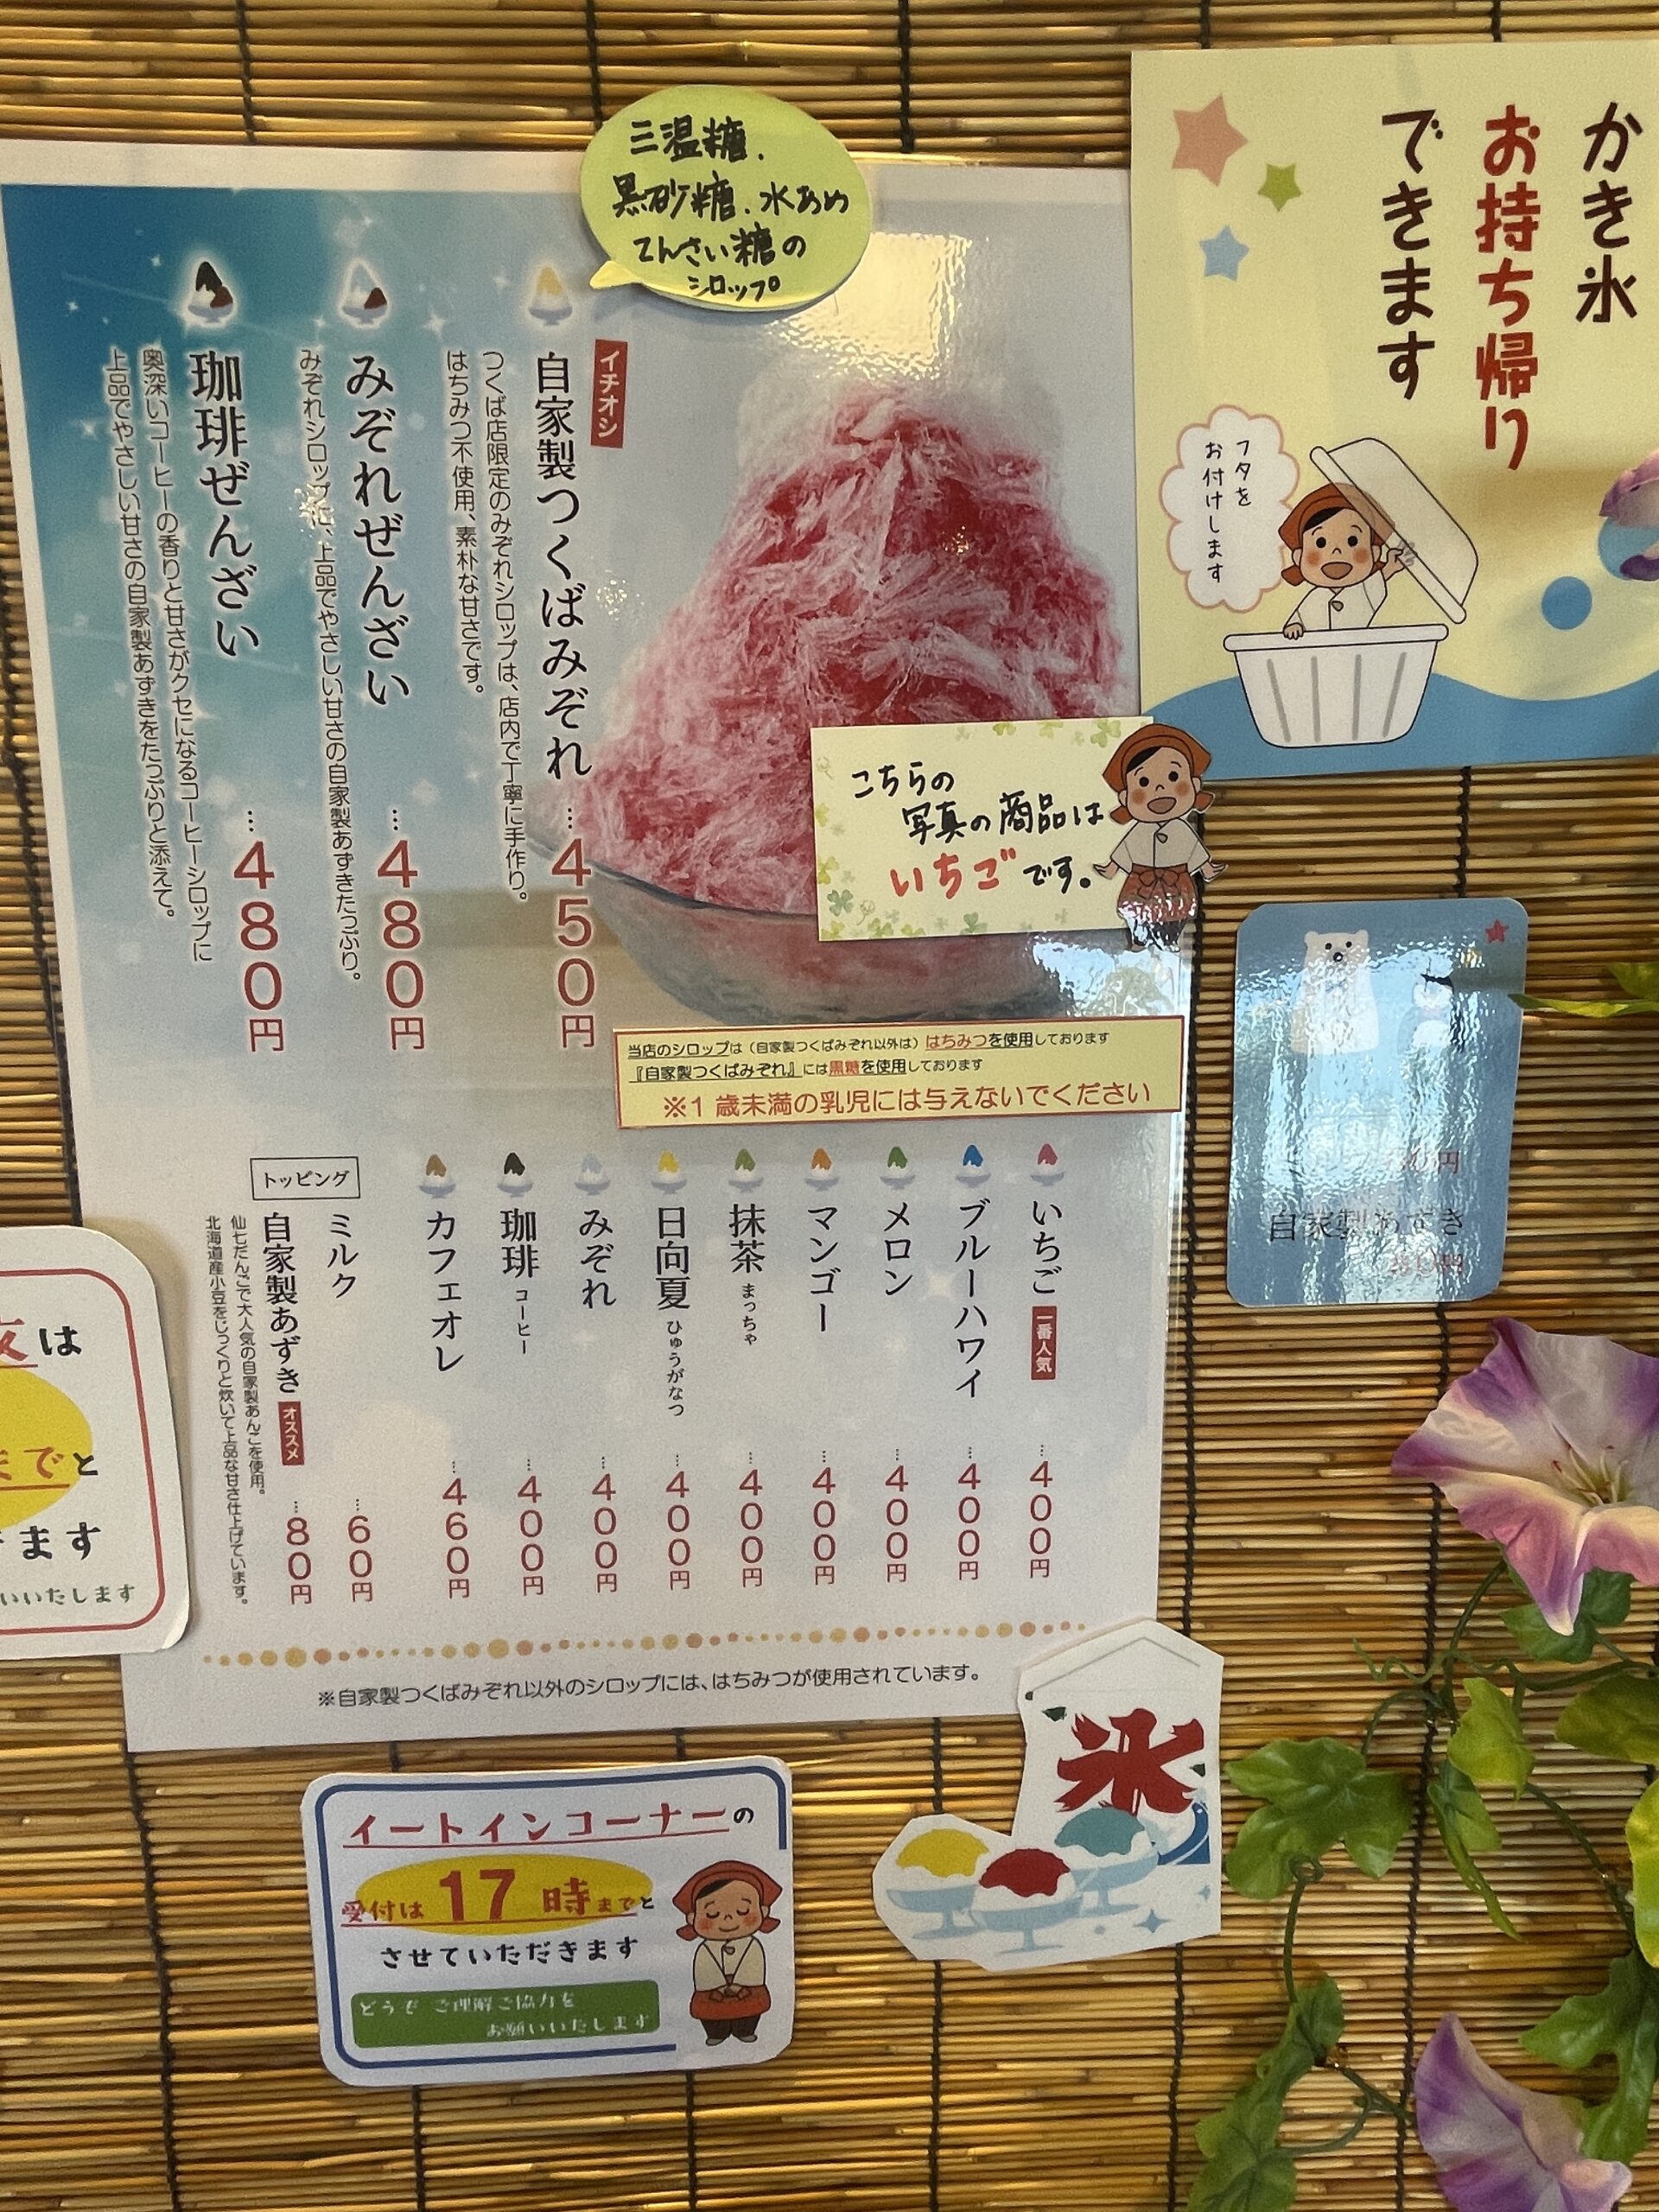 かき氷
お持ち帰り
できます
フタを
お付けします
三温糖.
黒砂糖.水あめ
てんさい糖の
シロップ
イチオシ
自家製つくばみぞれ
…450円
つくば店限定のみぞれシロップは、店内で丁寧に手作り。
はちみつ不使用、素朴な甘さです。
みぞれぜんざい
…480円
みぞれシロップに、上品でやさしい甘さの自家製あずきたっぷり。
珈琲ぜんざい
…480円
奥深いコーヒーの香りと甘さがクセになるコーヒーシロップに
上品でやさしい甘さの自家製あずきをたっぷりと添えて。
こちらの
写真の商品は
いちごです。
当店のシロップは(自家製つくばみぞれ以外は)はちみつを使用しております
『自家製つくばみぞれ』には黒糖を使用しております
※1歳未満の乳児には与えないでください
いちご 一番人気 …400円
ブルーハワイ …400円
メロン …400円
マンゴー …400円
抹茶 まっちゃ …400円
日向夏 ひゅうがなつ …400円
みぞれ …400円
珈琲 コーヒー …400円
カフェオレ …460円
トッピング
ミルク …60円
自家製あずき オススメ …80円
仙七だんごで大人気の自家製あんこを使用。
北海道産小豆をじっくりと炊いて上品な甘さ仕上げています。
※自家製つくばみぞれ以外のシロップには、はちみつが使用されています。
自家製あずき
は
までと
きます
いいたします
氷
イートインコーナーの
受付は17時までと
させていただきます
どうぞ ご理解ご協力を
お願いいたします